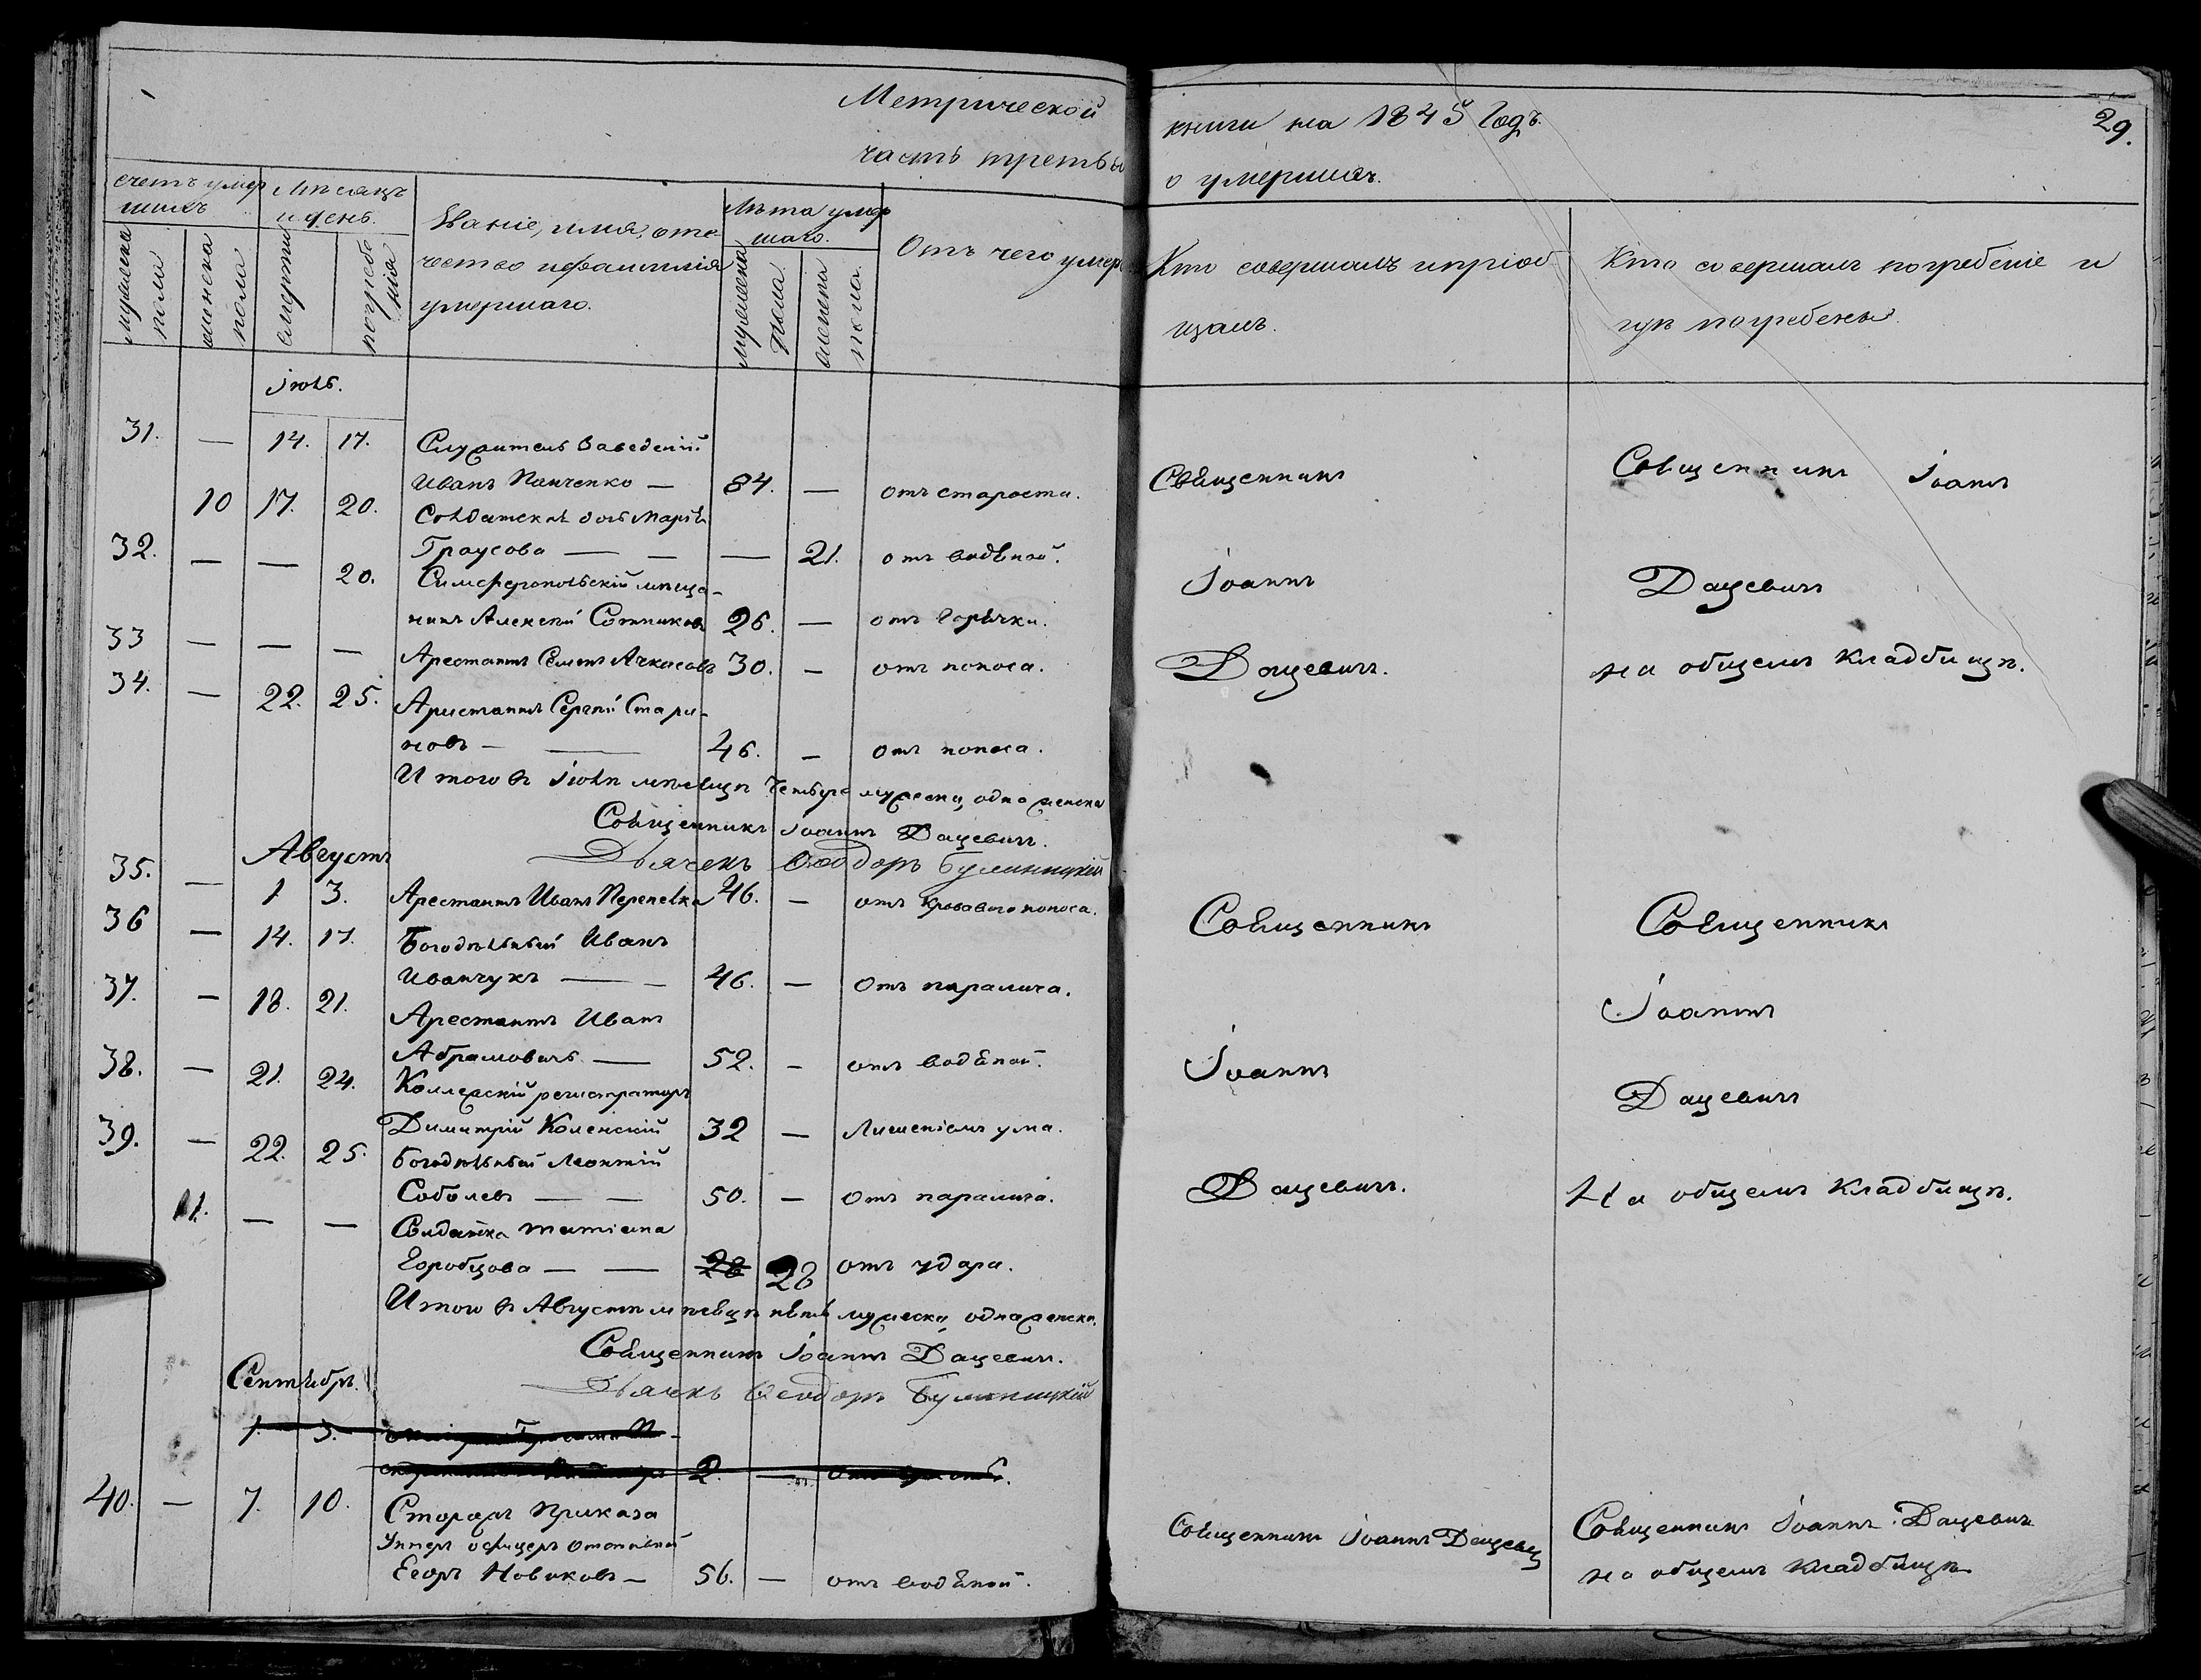 Метрической книги на 1845 Годъ. 29.
часть третья о умершихъ.
счетъ умершихъ
мужеска пола
женска пола
Мѣсяцъ и день.
смерти
погребенія
Званіе, имя, отечество и фамилія умершаго.
Лѣта умершаго.
мужеска пола
женска пола.
Отъ чего умеръ
Кто совершалъ и пріобщалъ.
Кто совершалъ погребеніе и гдѣ погребены.
Іюль.
31. — 14. 17. Служитель Заведеній
Иванъ Панченко — 84. — отъ старости.
10 17. 20. Солдатская дочь Марія
Траусова — — — 21. отъ водяной.
32. — — 20. Симферопольскій мѣща-
нинъ Алексѣй Сотниковъ 26. — отъ горячки.
33 — — — Арестантъ Семенъ Ачкасовъ 30. — отъ поноса.
34. — 22. 25. Аристантъ Сергѣй Стари-
новъ — — 46. — отъ поноса.
Священникъ
Іоаннъ
Дацевичъ.
Священникъ Іоаннъ
Дацевичъ
на общемъ кладбищѣ.
Итого въ Іюлѣ мѣсяцѣ четыре мужеска, одна женска
Священникъ Іоаннъ Дацевичъ.
Дьячекъ Ѳеодоръ
Августъ
35. — 1 3. Арестантъ Иванъ Перепелка 46. — отъ кроваваго поноса.
36 — 14. 17. Богодѣльный Иванъ
Иванчукъ — — 46. — Отъ паралича.
37. — 18. 21. Арестантъ Иванъ
Абрамовичъ — 52. — отъ водяной.
38. — 21. 24. Коллежскій регистраторъ
Димитрій Коленскій 32 — Лишеніемъ ума.
39. — 22. 25. Богодѣльный Леонтій
Соболевъ — — 50. — Отъ паралича.
11. — — Солдатка Татіана
Коробцова — — 28 28 отъ удара.
Священникъ
Іоаннъ
Дацевичъ.
Священникъ
Іоаннъ
Дацевичъ
На общемъ кладбищѣ.
Итого въ Августѣ мѣсяцѣ пять мужеска, одна женска.
Священникъ Іоаннъ Дацевичъ.
Дьячекъ Ѳеодоръ
Сентябрь.
1. 3.
2. —
40. — 7. 10. Сторожъ Приказа
Унтеръ офицеръ отставной
Егоръ Новиковъ — 56. — отъ водяной.
Священникъ Іоаннъ Дацевичъ
Священникъ Іоаннъ Дацевичъ
на общемъ кладбищѣ